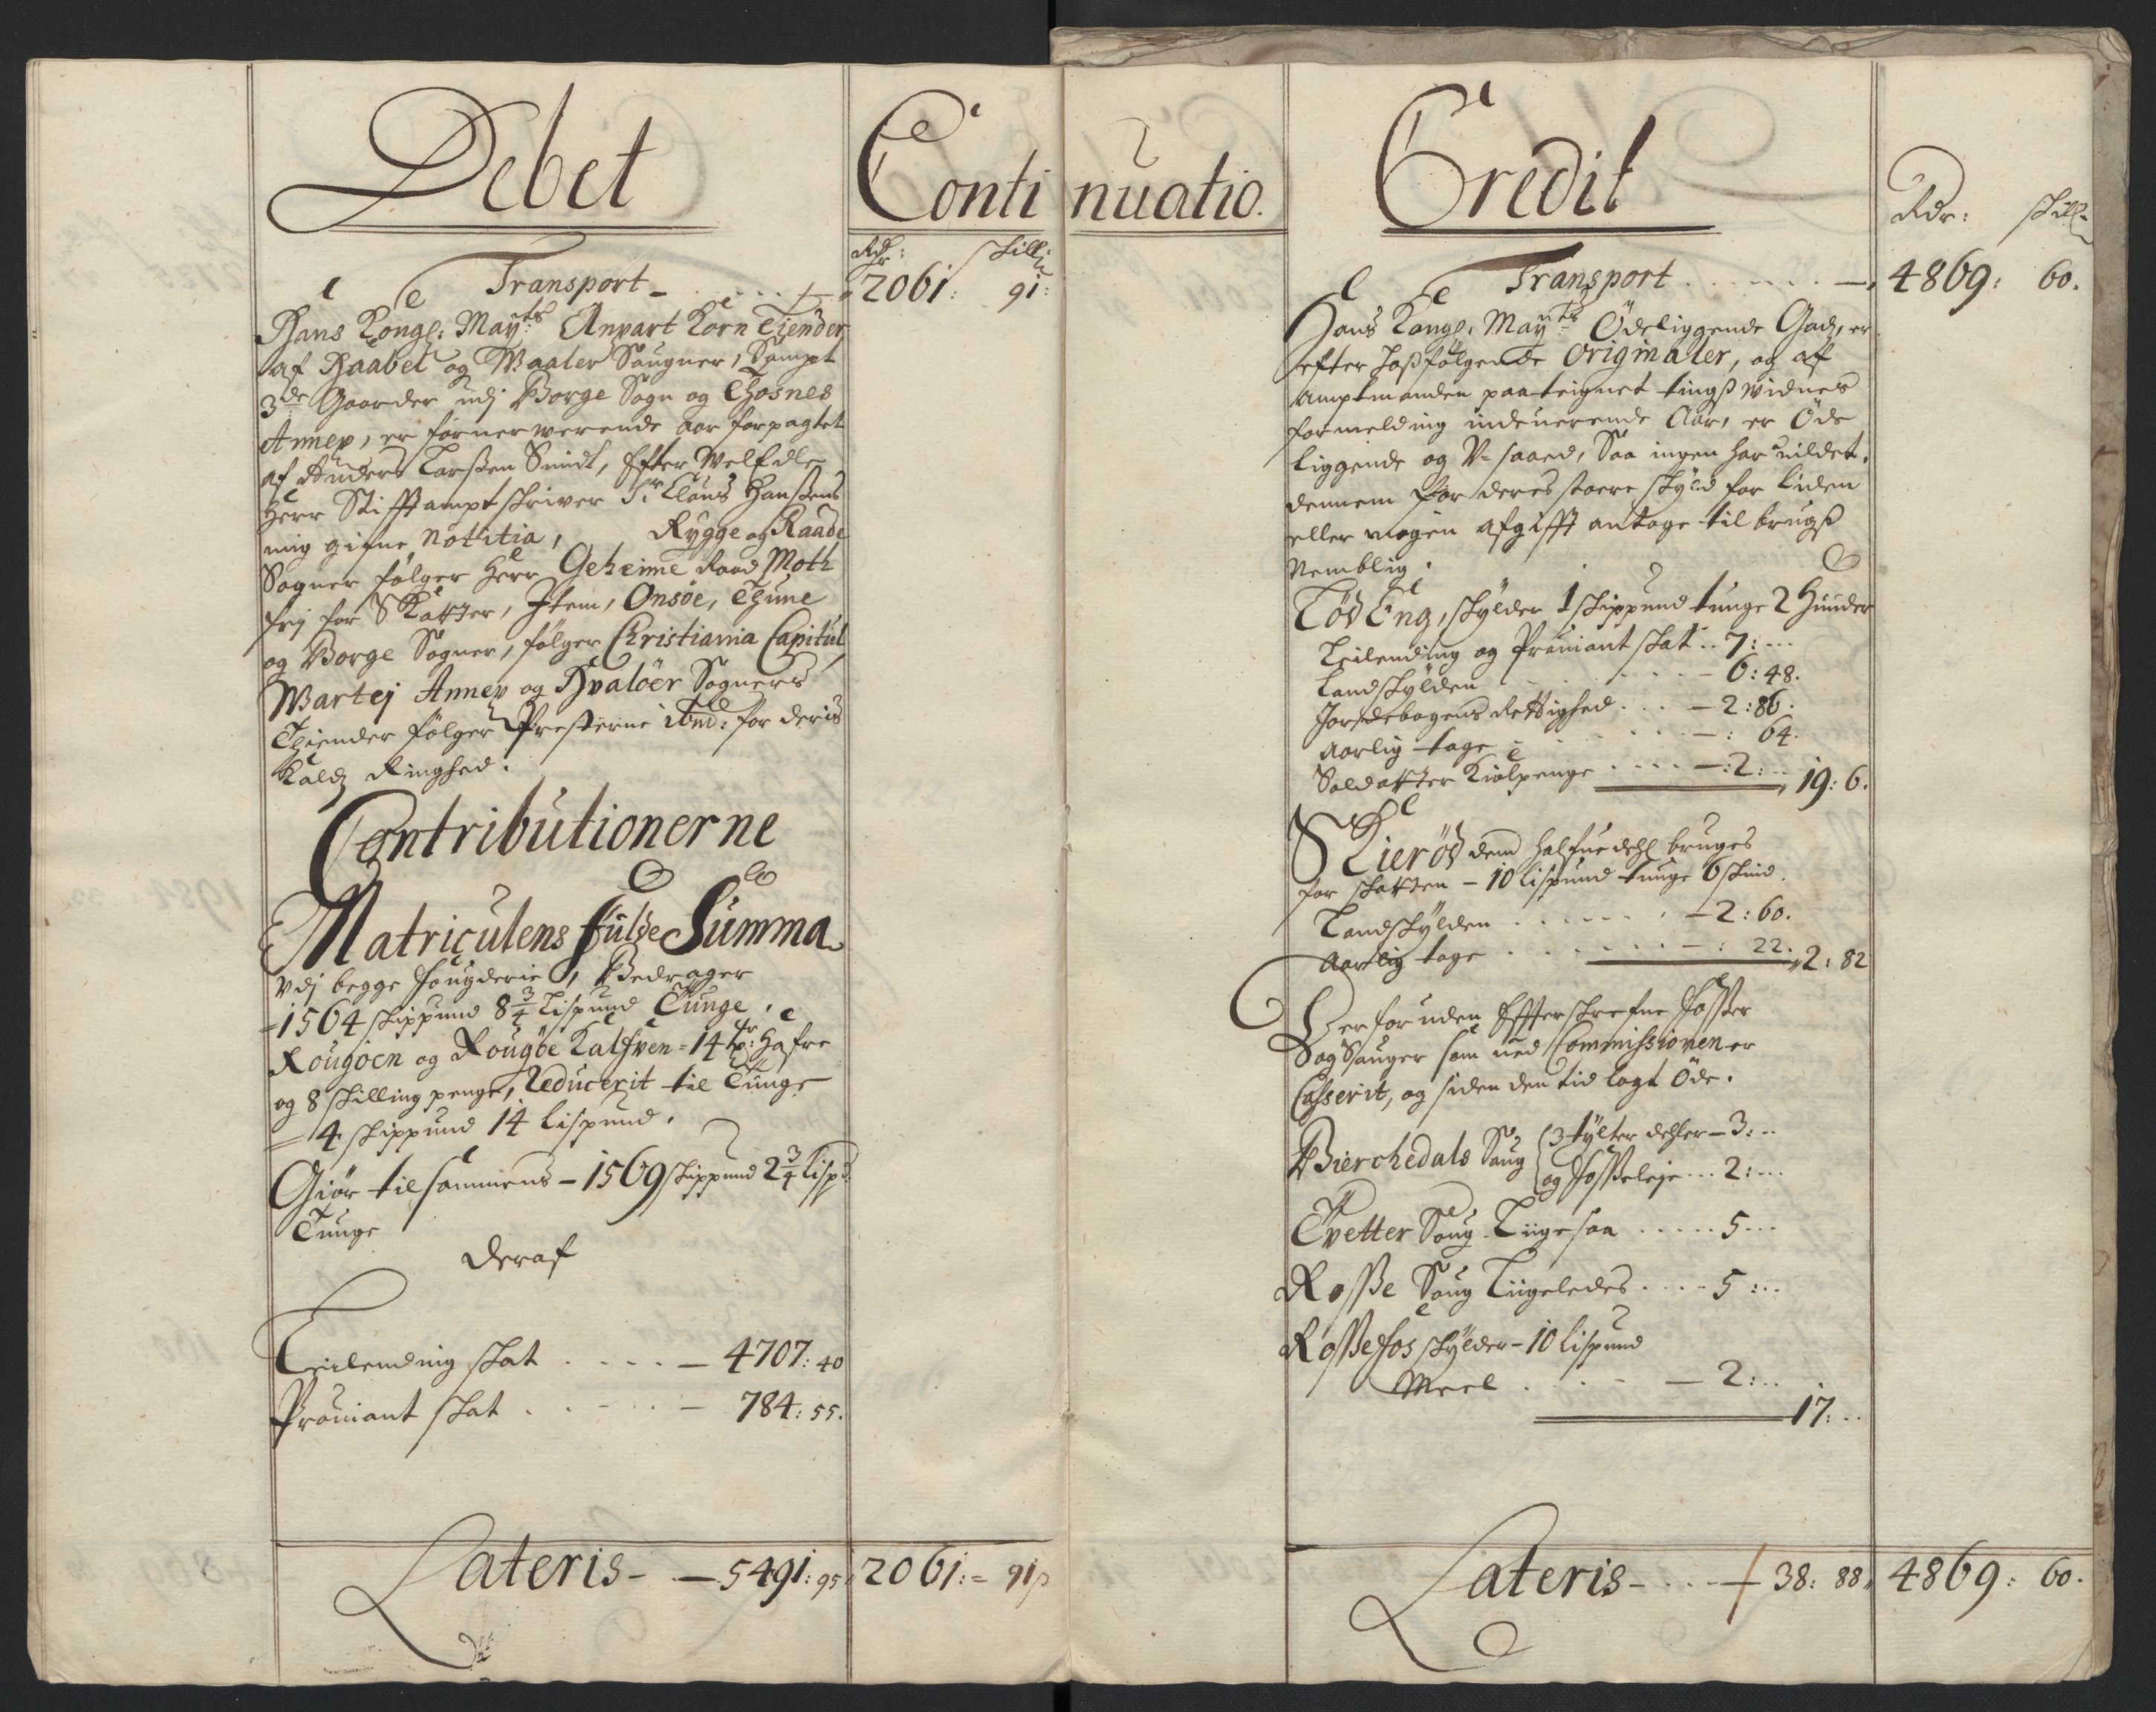 Debet
Continuatio.
Rdr: skilling
Transport - 2061: 91:
Hans Kongl: Mayts Anpart Korn Tiender
af Raabet og Waaler Sougner, Sampt
3de Gaarder udj Borge Sogn og Thosnes
Annex, er forner werende aar forpagtet
af Anders Larssen Smidt, Efter WelEdle
Herr Stifftamptskriver Sr Claus Hanssens
mig gifne Notitia, Rygge og Raade
Sogner følger Herr Geheime Raad Moth
frj for Skatter, Item, Onsøe, Thune
og Borge Sogner, følger Christiania Capitul
Wartej Annex og Hvaløer Sogners
Thiender følger Presterne ibm: for deris
Kalds Ringhed.
Contributionerne
Matriculens fulde Summa
Vdj begge fougderie, Bedrager
- 1564 skippund 8 3/4 Lispund Tunge.
Rougøen og Rougøe Kalfven = 14 tr: Hafre
og 8 skilling penge, Reducerit til Tunge
= 4 skippund 14 Lispund.
Giør tilsammens - 1569 skippund 2 3/4 Lispd:
Tunge
Deraf
Leilending skat - 4707: 40
Proviant skat - 784: 55.
Lateris - 5491: 95 2061: = 91
Credit
Rdr: skill
Transport - 4869: 60.
Hans Kongl: Mayts Ødeliggende Gods, er
efter hossfølgende Originaler, og af
Amptmanden paateignet tingsswidnes
formelding indeverende Aar, er Øde
liggende og V-saaed, Saa ingen har vildet
dennem for deres stoere skyld for liden
eller nogen afgifft antage til brugss
Nemblig.
Løs Eng, skylder 1 skippund tunge 2 Hunder
Leilending og Proviant skat .. 7: ...
Landskylden - 6: 48.
Jordebogens Rettighed - 2: 86.
Aarlig tage -: 64.
Soldatter Kiolpenge - : 2: .. 19: 6.
Skierøs dend halfue dehl bruges
for skatten - 10 Lispund tunge 6 skind.
Landskylden - 2: 60.
Aarlig tage -: 22. 2: 82
Herforuden Effterskrefne Fosser
og Sauger som ved Commissionen er
Casserit, og siden den tid lagt Øde.
Bierchedals Saug 3 tylter dehler - 3: ..
og Fosseleje ... 2: ...
Tvetter Saug Liigesaa ..... 5 ...
Rosse Saug Liigeledes .... 5: ..
Rossefos skylder - 10 Lispund
Meel - 2: ..
17: ..
Lateris - 38: 88 4869: 60.